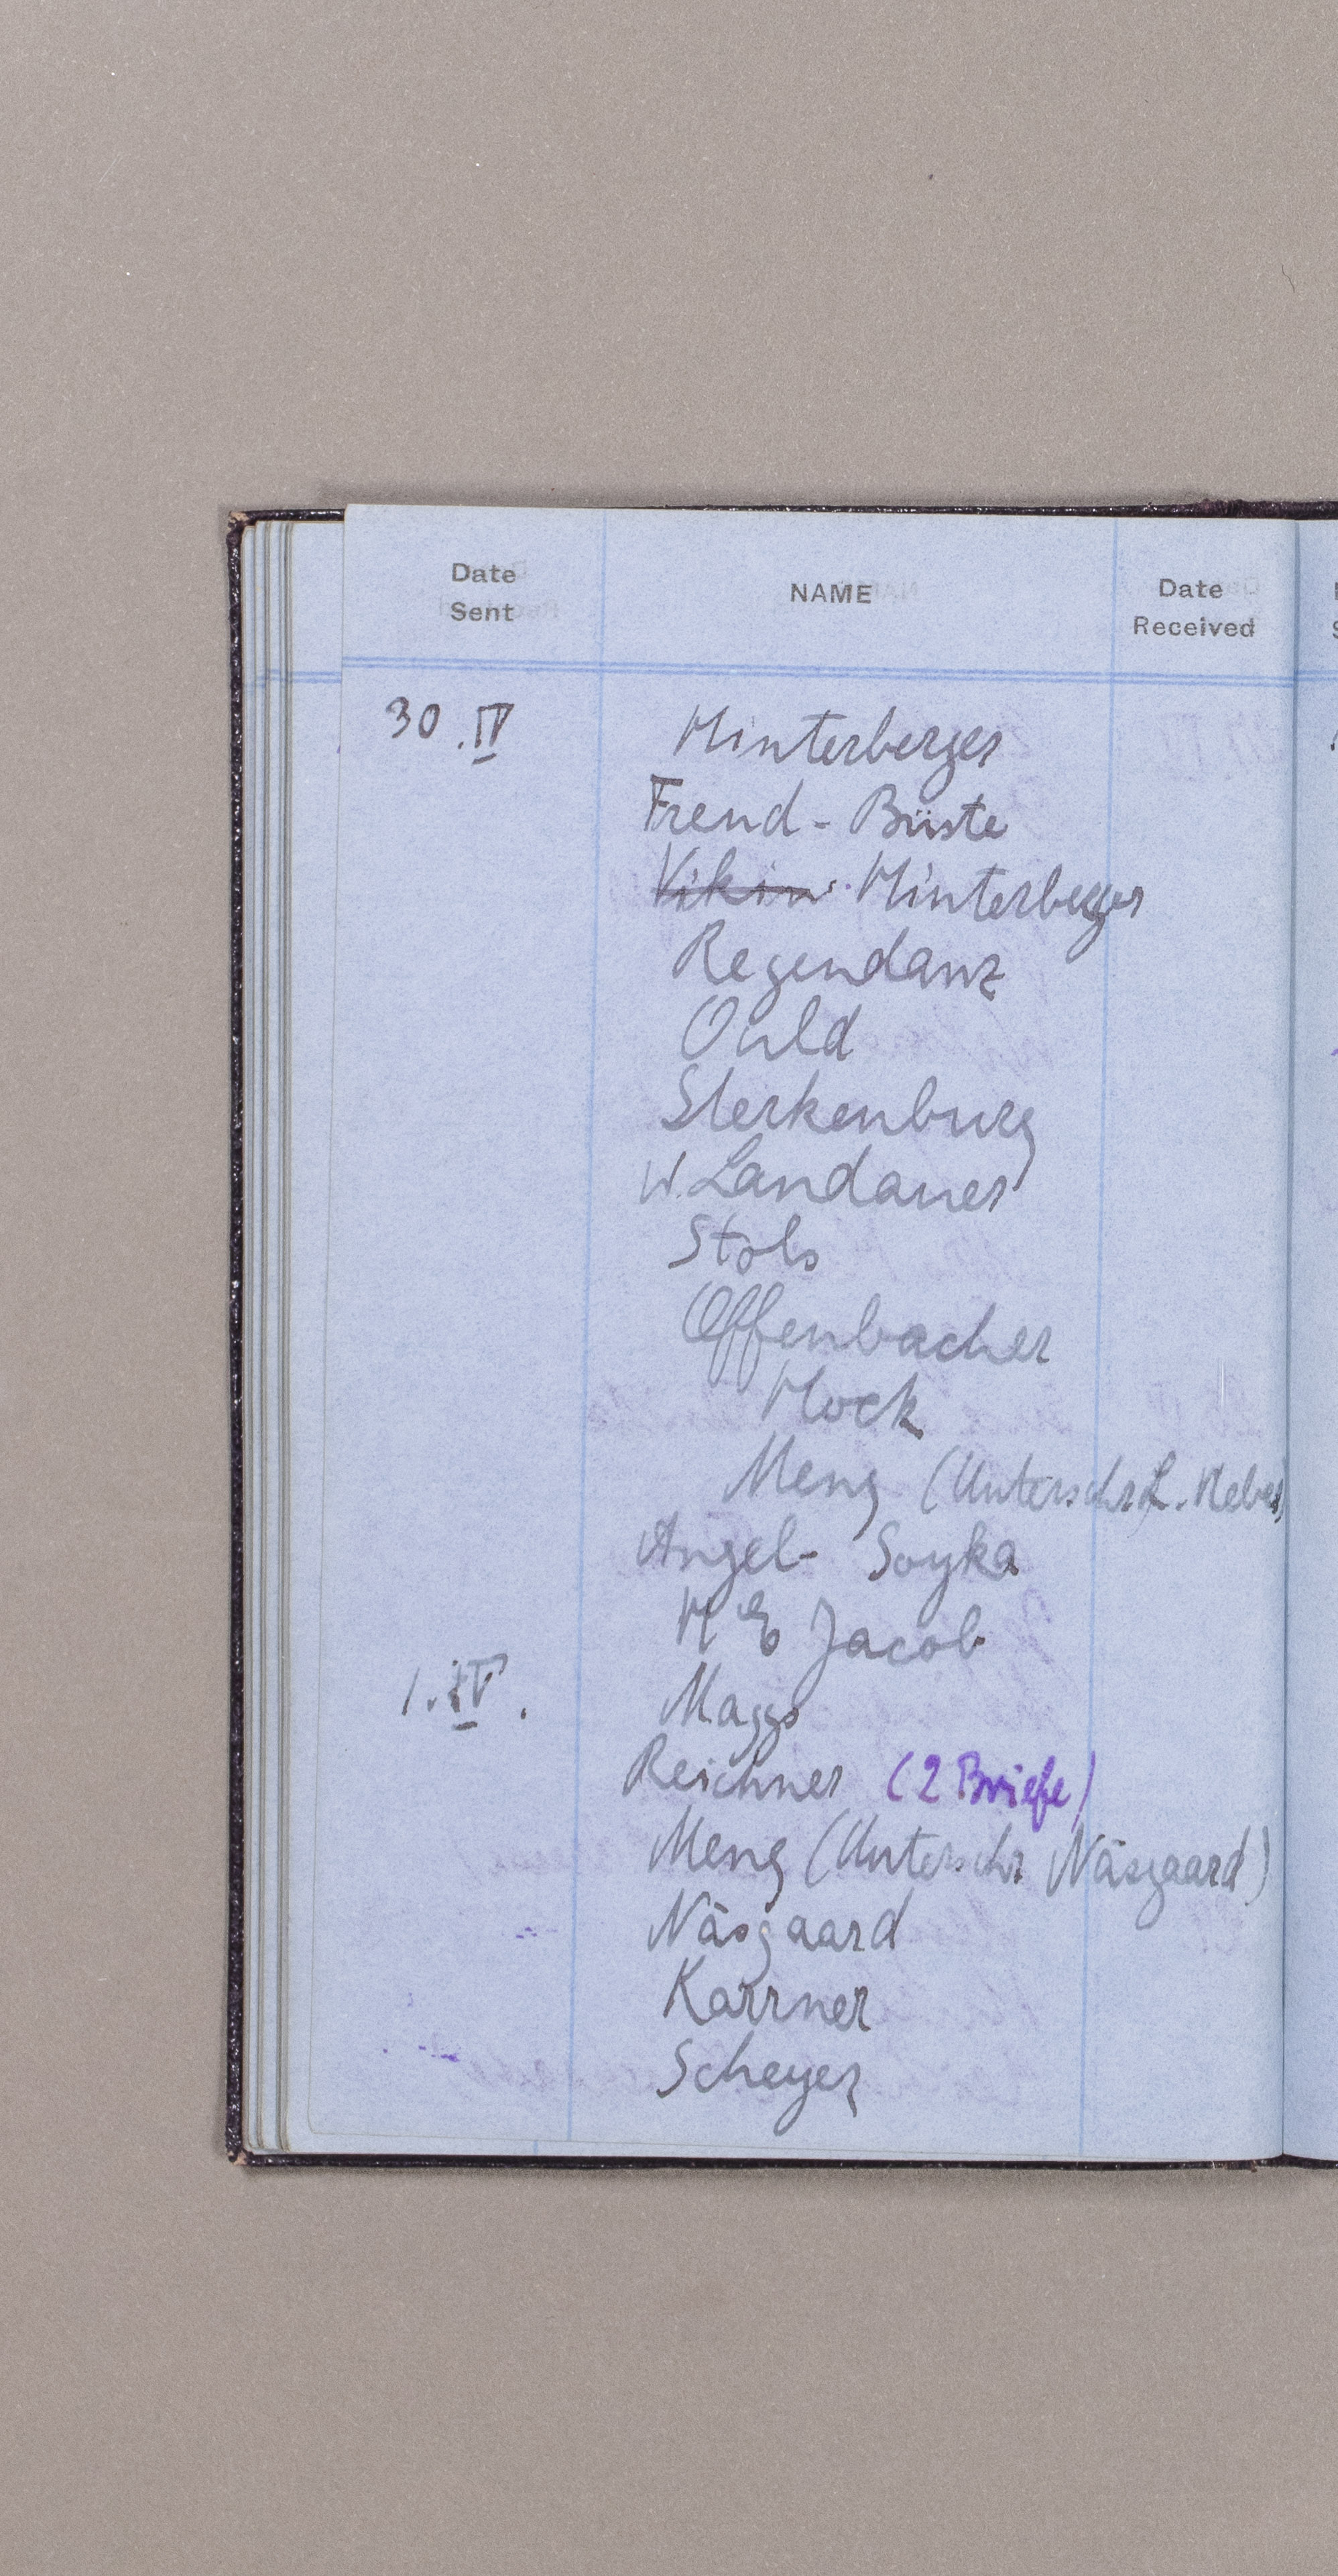 Date Sent NAME Date Received
30. IV Hinterberger
Freud - Büste
Vikin Hinterberger
Regendanz
Ould
Sterkenburg
W. Landauer
Stols
Offenbacher
Hock
Meng (Unterschr L.
Angel - Soyka
H E Jacob
1. IV. Maggs
Reichner (2 Briefe)
Meng (Unterschr Näsgaard)
Näsgaard
Karrner
Scheyer